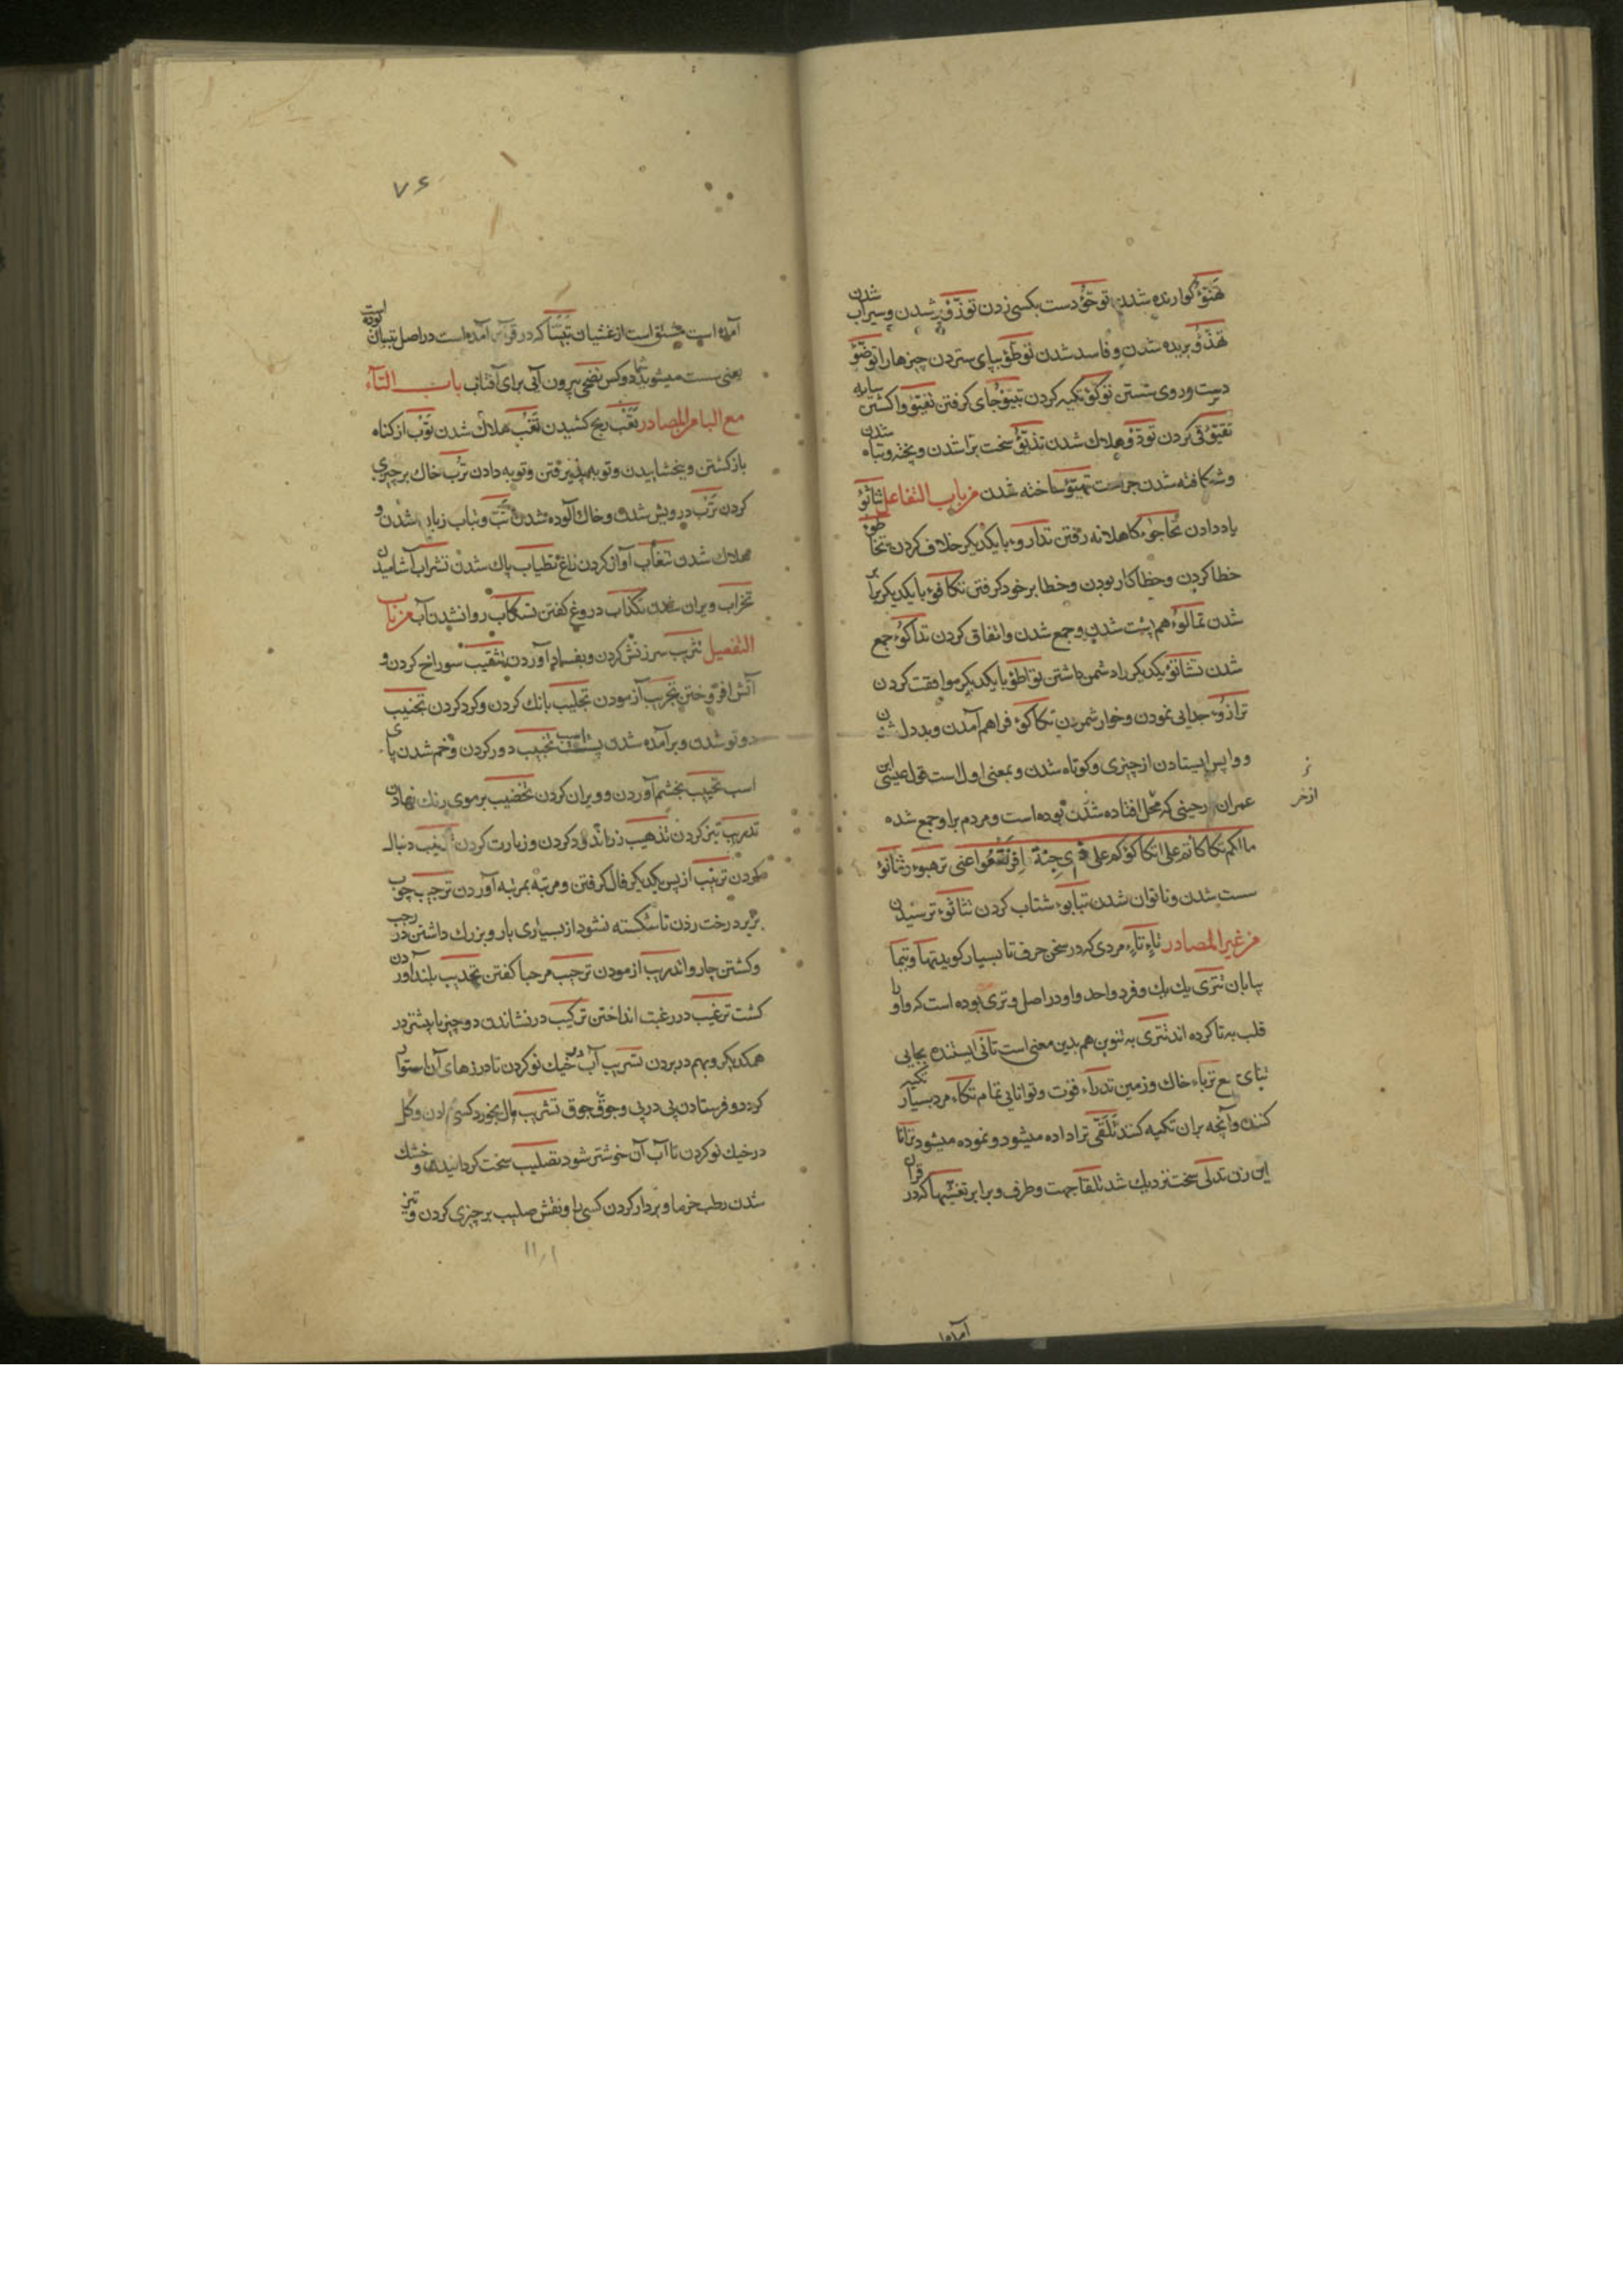 تهنّؤ گوارنده شدن توجّؤ دست بکسی زدن توزّؤ پر شدن و سیراب شدن
تهذّؤ بریده شدن و فاسد شدن توطّؤ بپای ستردن چیزها را توضّؤ
دست و روی شستن توکّؤ تکیه کردن تبوّؤ جای گرفتن تفیّؤ واگشتن سایه
تقیّؤ قی کردن تودّؤ هلاک شدن تذیّؤ سخت براشدن و پخته و تباه شدن
و شکافته شدن جراحت تهیّؤ ساخته شدن من باب التفاعل تثاؤ
یاد دادن تجاجؤ کاهلانه رفتن تدارؤ با یکدیگر خلاف کردن تخاطؤ
خطا کردن و خطاکار بودن و خطا بر خود گرفتن تکافؤ با یکدیگر برابر
شدن تمالؤ هم پشت شدن و جمع شدن و اتفاق کردن تداکؤ جمع
شدن تشانؤ یکدیگر را دشمن داشتن تواطؤ با یکدیگر موافقت کردن
ترازؤ جدایی نمودن و خوار شمردن تکاکؤ فراهم آمدن و بددل شدن
و واپس ایستادن از چیزی و کوتاه شدن و بمعنی اول است قول عیسی ابن
عمران رحینی که محل افتاده شدن بوده است و مردم برا و جمع شده
ما لکم تکاکاتم علی تکاکؤکم علی ذی جنة افرنقعوا عنی ترهیؤ و ثثانؤ
سست شدن و ناتوان شدن تبابؤ شتاب کردن تثاثؤ ترسیدن
من غیر المصادر تاء تاء مردی که در سخن حرف تا بسیار گوید تیها و تیما
بیابان تتری یک یک و فرد واحد و او در اصل وتری بوده است که واو را
قلب به تا کرده اند تتری به تنوین هم بدین معنی است تانی ایستنده بجایی
تبای ع ترباء خاک و زمین تدراء قوت و توانایی تمام تکاء مرد بسیار تکیه
کننده و آنچه بران تکیه کنند تلقی ترا داده میشود و نموده میشود
این زن تدلی سخت نزدیک شد تلقا جهت و طرف و برابر تغشیها که در قران
آمده است مشتق است از غشیان تبیّنا که در قرآن آمده است در اصل تبیان بوده است
یعنی ست میشوید شما دو کس تضحی بیرون آیی برای آفتاب باب التاء
مع الباء من المصادر تعب رنج کشیدن تغب هلاک شدن توب از گناه
بازگشتن و بخشاییدن و توبه پذیرفتن و توبه دادن ترب خاک بر چیزی
کردن ترب درویش شدن و خاک آلوده شدن تبّ و تباب زیان شدن و
هلاک شدن تنعاب آواز کردن زاغ تطیاب پاک شدن تشراب آشامیدن
تخراب ویران شدن تکذاب دروغ گفتن تسکاب روان شدن آب من باب
التفعیل تثریب سرزنش کردن و بفساد آوردن تثقیب سوراخ کردن و
آتش افروختن تجریب آزمودن تجلیب بانک کردن و گرد کردن تحنیب
دوتو شدن و برآمده شدن پشت اسب تجبیب دور کردن و خم شدن پای
اسب تخریب بخشم آوردن و ویران کردن تخضیب بر موی رنک نهادن
تدریب تیز کردن تذهیب زر اندود کردن و زیارت کردن دنبال
کردن ترتیب از پس یکدیگر فال گرفتن و مرتبه بمرتبه آوردن ترجیب چوب
بزیر درخت زدن تا شکسته نشود از بسیاری بار و بزرک داشتن در رجب
و کشتن چاروا تدریب ازمودن ترحیب مرحبا گفتن تحدیب بلند آوردن
کشت ترغیب در رغبت انداختن ترکیب در نشاندن دو چیز یا بیشتر در
همدیگر و بهم در بردن تسریب آب در خیک نو کردن تا درزهای آن استوار
گردد و فرستادن پی در پی و جوق جوق تشریب مال بخورد کسی دادن و گل
در خیک نو کردن تا آب آن خوشتر شود تصلیب سخت گردانیدن و خشک
شدن رطب خرما و بردار کردن کسی را و نقش صلیب بر چیزی کردن و تیز